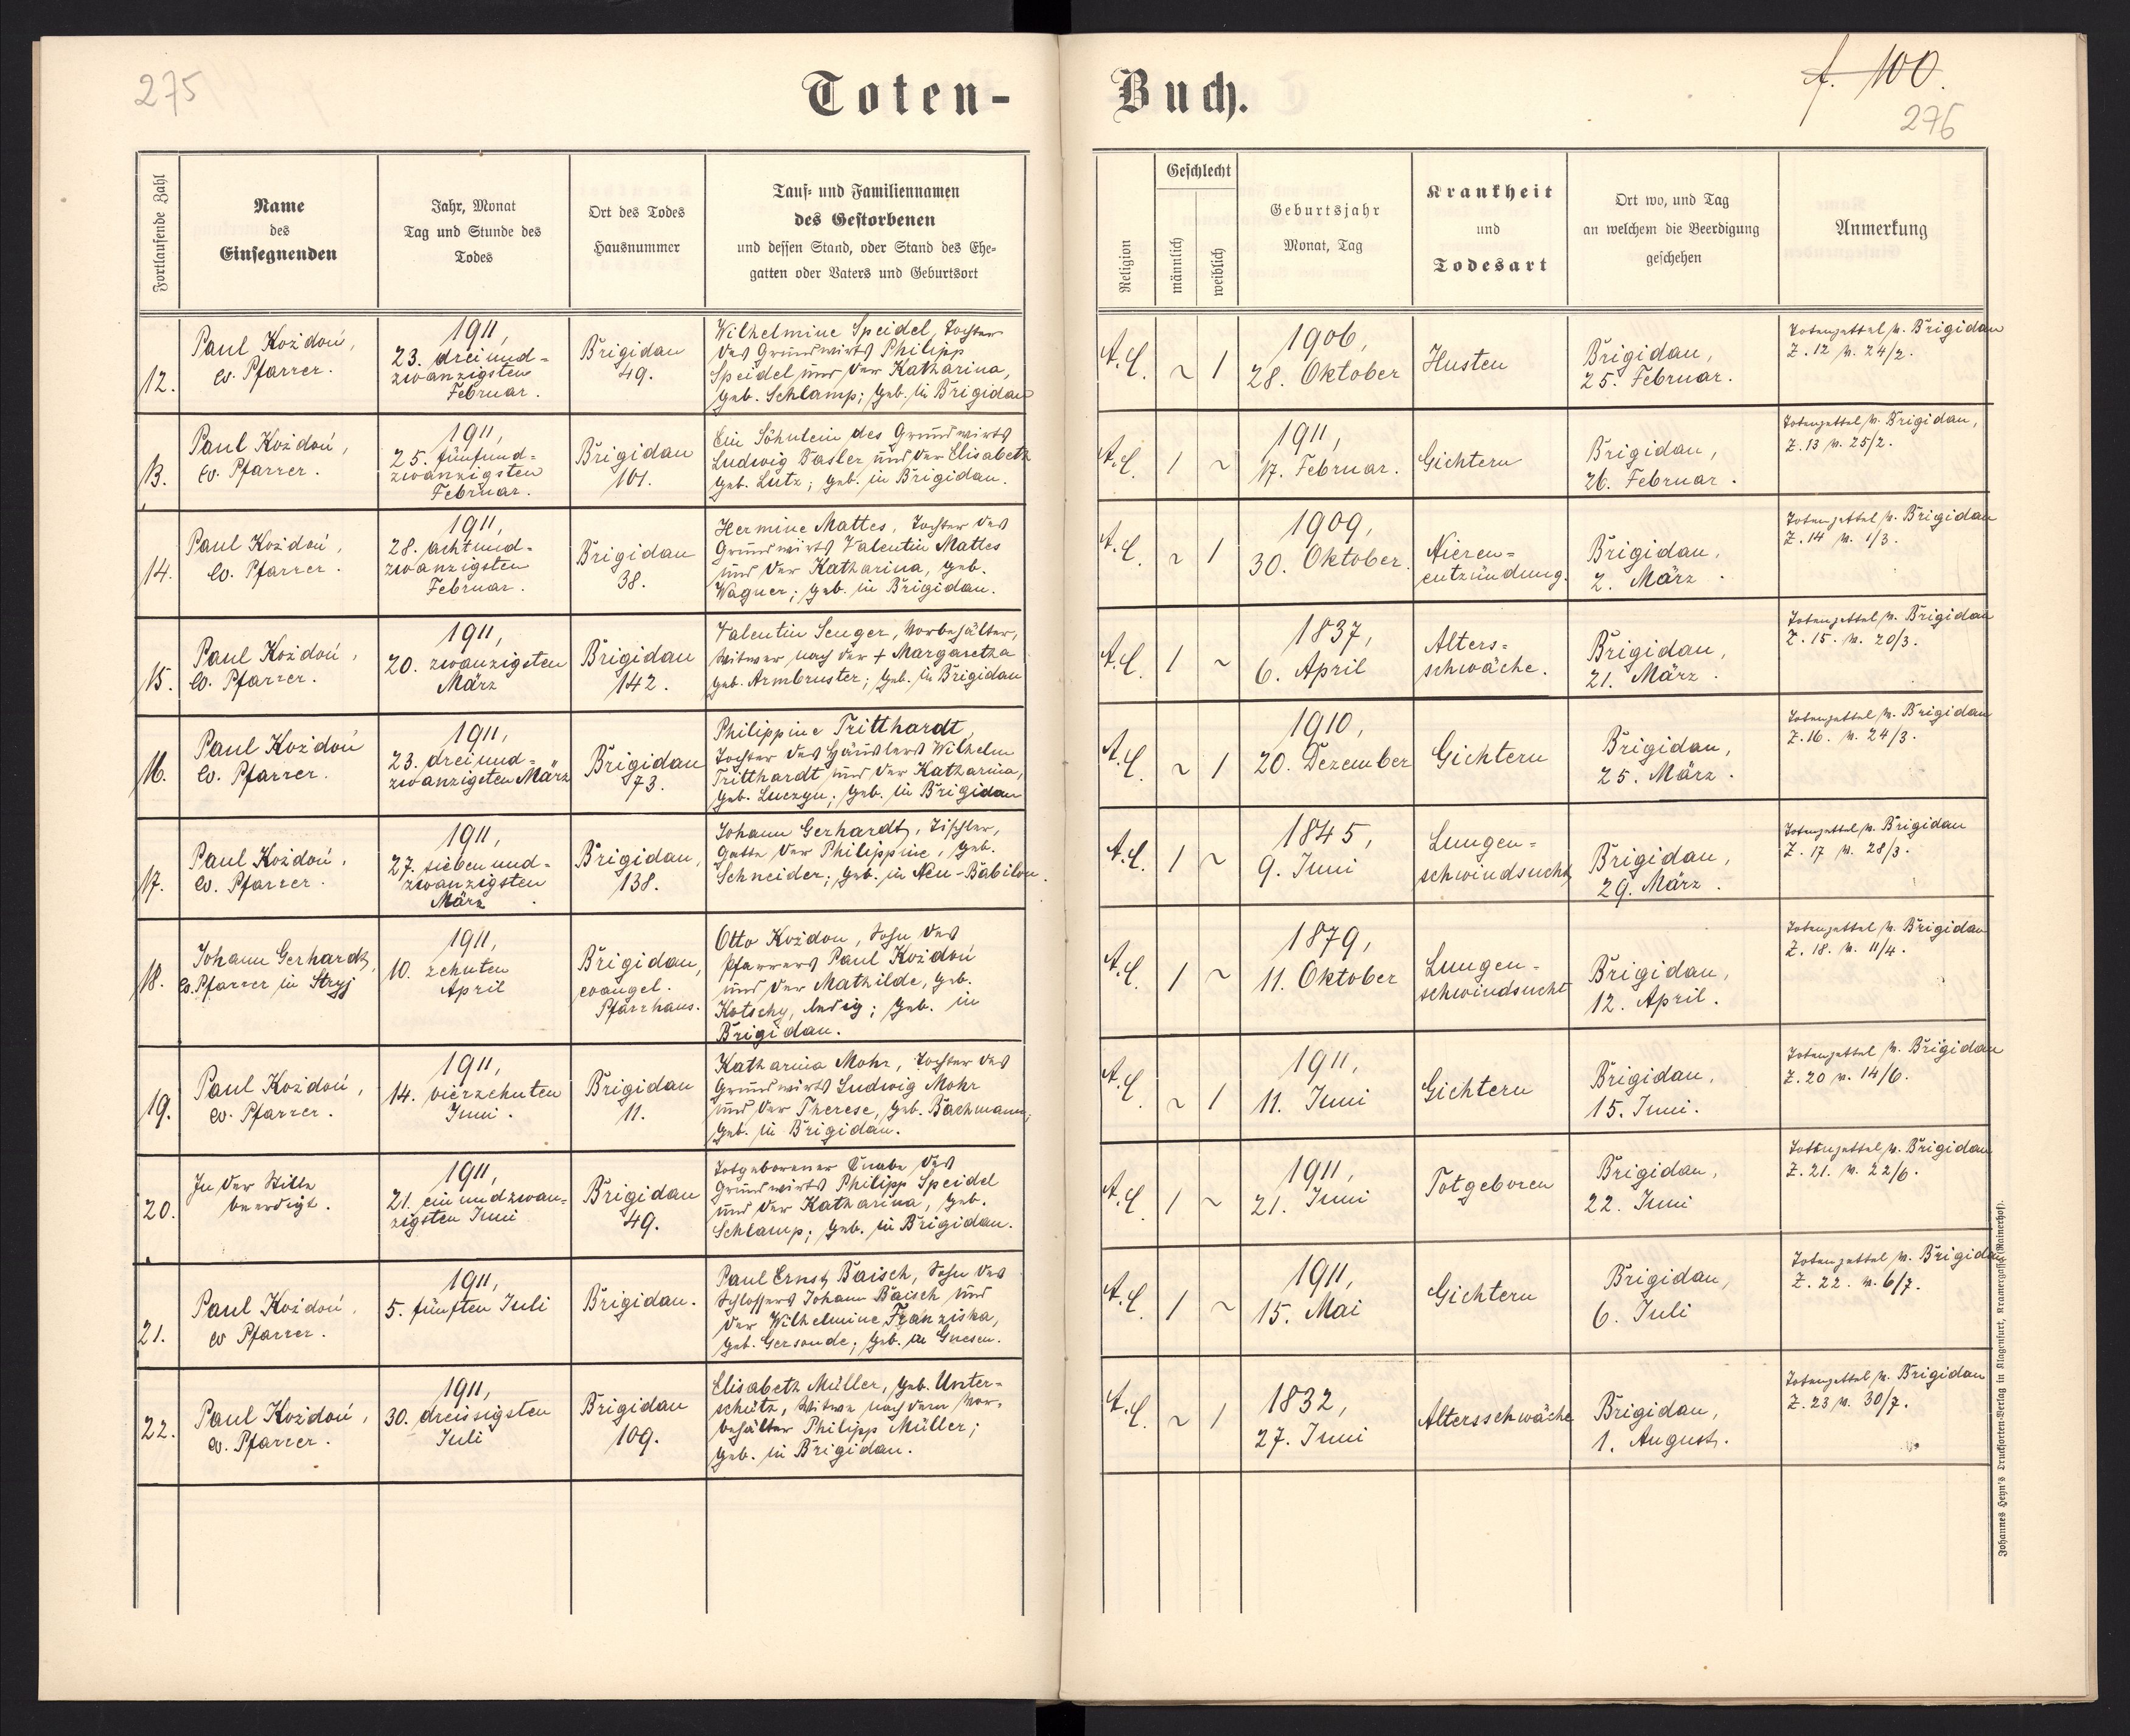 275
Toten-
Buch.
f. 100.
276
Fortlaufende Zahl
Name
des
Einsegnenden
Jahr, Monat
Tag und Stunde des
Todes
Ort des Todes
Hausnummer
Tauf- und Familiennamen
des Gestorbenen
und dessen Stand, oder Stand des Ehe-
gatten oder Vaters und Geburtsort
Religion
Geschlecht
männlich
weiblich
Geburtsjahr
Monat, Tag
Krankheit
und
Todesart
Ort wo, und Tag
an welchem die Beerdigung
geschehen
Anmerkung
12.
Paul Koždoń,
ev. Pfarrer.
1911,
23. dreiund-
zwanzigsten
Februar.
Brigidau
49.
Wilhelmine Speidel, Tochter
des Grundwirts Philipp
Speidel und der Katharina,
geb. Schlamp; geb. in Brigidau
A.C.
~
1
1906,
28. Oktober
Husten
Brigidau,
25. Februar.
Totenzettel v. Brigidau
Z. 12 v. 24/2.
13.
Paul Koždoń,
ev. Pfarrer.
1911,
25. fünfund-
zwanzigsten
Februar.
Brigidau
101.
Ein Söhnlein des Grundwirts
Ludwig Basler und der Elisabeth
geb. Lutz; geb. in Brigidau.
A.C.
1
~
1911,
17. Februar.
Gichtern
Brigidau,
26. Februar.
Totenzettel v. Brigidau,
Z. 13 v. 25/2.
14.
Paul Koždoń,
ev. Pfarrer.
1911,
28. achtund-
zwanzigsten
Februar.
Brigidau
38.
Hermine Mattes, Tochter des
Grundwirts Valentin Mattes
und der Katharina, geb.
Wagner; geb. in Brigidau.
A.C.
~
1
1909,
30. Oktober.
Nieren-
entzündung.
Brigidau,
2. März.
Totenzettel v. Brigidau
Z. 14 v. 1/3.
15.
Paul Koždoń,
ev. Pfarrer.
1911,
20. zwanzigsten
März
Brigidau
142.
Valentin Senger, Vorbehälter,
Witwer nach der + Margaretha
geb. Armbruster; geb. in Brigidau
A.C.
1
~
1837,
6. April
Alters-
schwäche.
Brigidau,
21. März.
Totenzettel v. Brigidau
Z. 15. v. 20/3.
16.
Paul Koždoń
ev. Pfarrer.
1911,
23. dreiund-
zwanzigsten März
Brigidau
73.
Philippine Tritthardt,
Tochter des Häuslers Wilhelm
Tritthardt und der Katharina,
geb. Luczyn; geb. in Brigidau
A.C.
~
1
1910,
20. Dezember
Gichtern
Brigidau,
25. März.
Totenzettel v. Brigidau
Z. 16. v. 24/3.
17.
Paul Koždoń,
ev. Pfarrer.
1911,
27. siebenund-
zwanzigsten
März.
Brigidau,
138.
Johann Gerhardt, Tischler,
Gatte der Philippine, geb.
Schneider; geb. in Neu-Babilon.
A.C.
1
~
1845,
9. Juni
Lungen-
schwindsucht
Brigidau,
29. März.
Totenzettel v. Brigidau
Z. 17 v. 28/3.
18.
Johann Gerhardt,
ev. Pfarrer in Stryj
1911,
10. zehnten
April
Brigidau,
evangel.
Pfarrhaus.
Otto Koždon, Sohn des
Pfarrers Paul Koždoń
und der Mathilde, geb.
Kotschy, ledig; geb. in
Brigidau.
A.C.
1
~
1879,
11. Oktober
Lungen-
schwindsucht
Brigidau,
12. April.
Totenzettel v. Brigidau
Z. 18. v. 11/4.
19.
Paul Koždoń,
ev. Pfarrer.
1911,
14. vierzehnten
Juni.
Brigidau
11.
Katharina Mohr, Tochter des
Grundwirts Ludwig Mohr
und der Therese, geb. Bachmann;
geb. in Brigidau.
A.C.
~
1
1911,
11. Juni
Gichtern
Brigidau,
15. Juni.
Totenzettel v. Brigidau
Z. 20 v. 14/6.
20.
In der Stille
beerdigt.
1911,
21. einundzwan-
zigsten Juni
Brigidau
49.
Totgeborener Knabe des
Grundwirts Philipp Speidel
und der Katharina, geb.
Schlamp; geb. in Brigidau.
A.C.
1
~
1911,
21. Juni
Totgeboren
Brigidau,
22. Juni
Totenzettel v. Brigidau
Z. 21. v. 22/6.
21.
Paul Koždoń,
ev Pfarrer.
1911,
5. fünften Juli
Brigidau.
Paul Ernst Baisch, Sohn des
Schlossers Johann Baisch und
der Wilhelmine Franziska,
geb. Gersonde; geb. in Gnesen.
A.C.
1
~
1911,
15. Mai
Gichtern
Brigidau,
6. Juli
Totenzettel v. Brigidau
Z. 22. v. 6/7.
22.
Paul Koždoń,
ev. Pfarrer.
1911,
30. dreissigsten
Juli
Brigidau
109.
Elisabeth Müller, geb. Unter-
schütz, Witwe nach dem Vor-
behälter Philipp Müller;
geb. in Brigidau.
A.C.
~
1
1832,
27. Juni
Altersschwäche
Brigidau,
1. August.
Totenzettel v. Brigidau
Z. 23 v. 30/7.
Johannes Heyn's Drucksorten-Verlag in Klagenfurt, Kramergasse (Rainerhof).